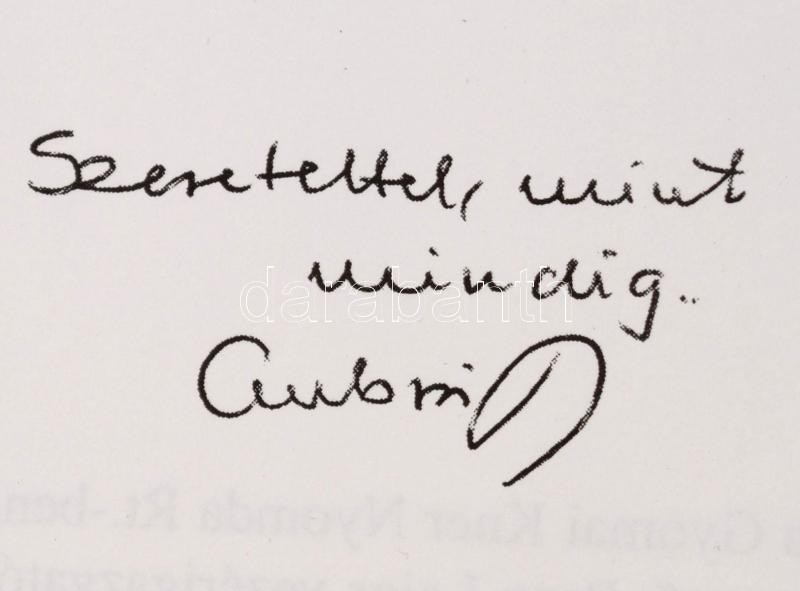 Szeretettel, mint
mindig..
darabanth
a Gyomai Kner Nyomda Rt.-ben